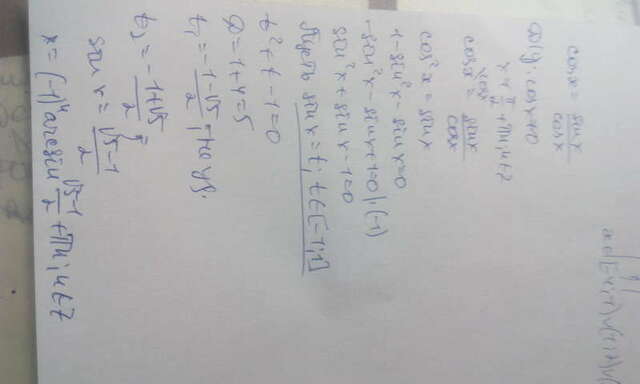 cosx = sinx/cosx
ОДЗ: cosx≠0
x ≠ π/2 + πn, n∈Z
cosx = sinx/cosx
cos²x = sinx
1-sin²x-sinx=0
-sin²x-sinx+1=0 |·(-1)
sin²x+sinx-1=0
Пусть sinx=t, t∈[-1;1]
t²+t-1=0
D=1+4=5
t₁ = (-1-√5)/2, - по уз.
t₂ = (-1+√5)/2
sinx = (√5-1)/2
x = (-1)ⁿ arcsin (√5-1)/2 + πn, n∈Z